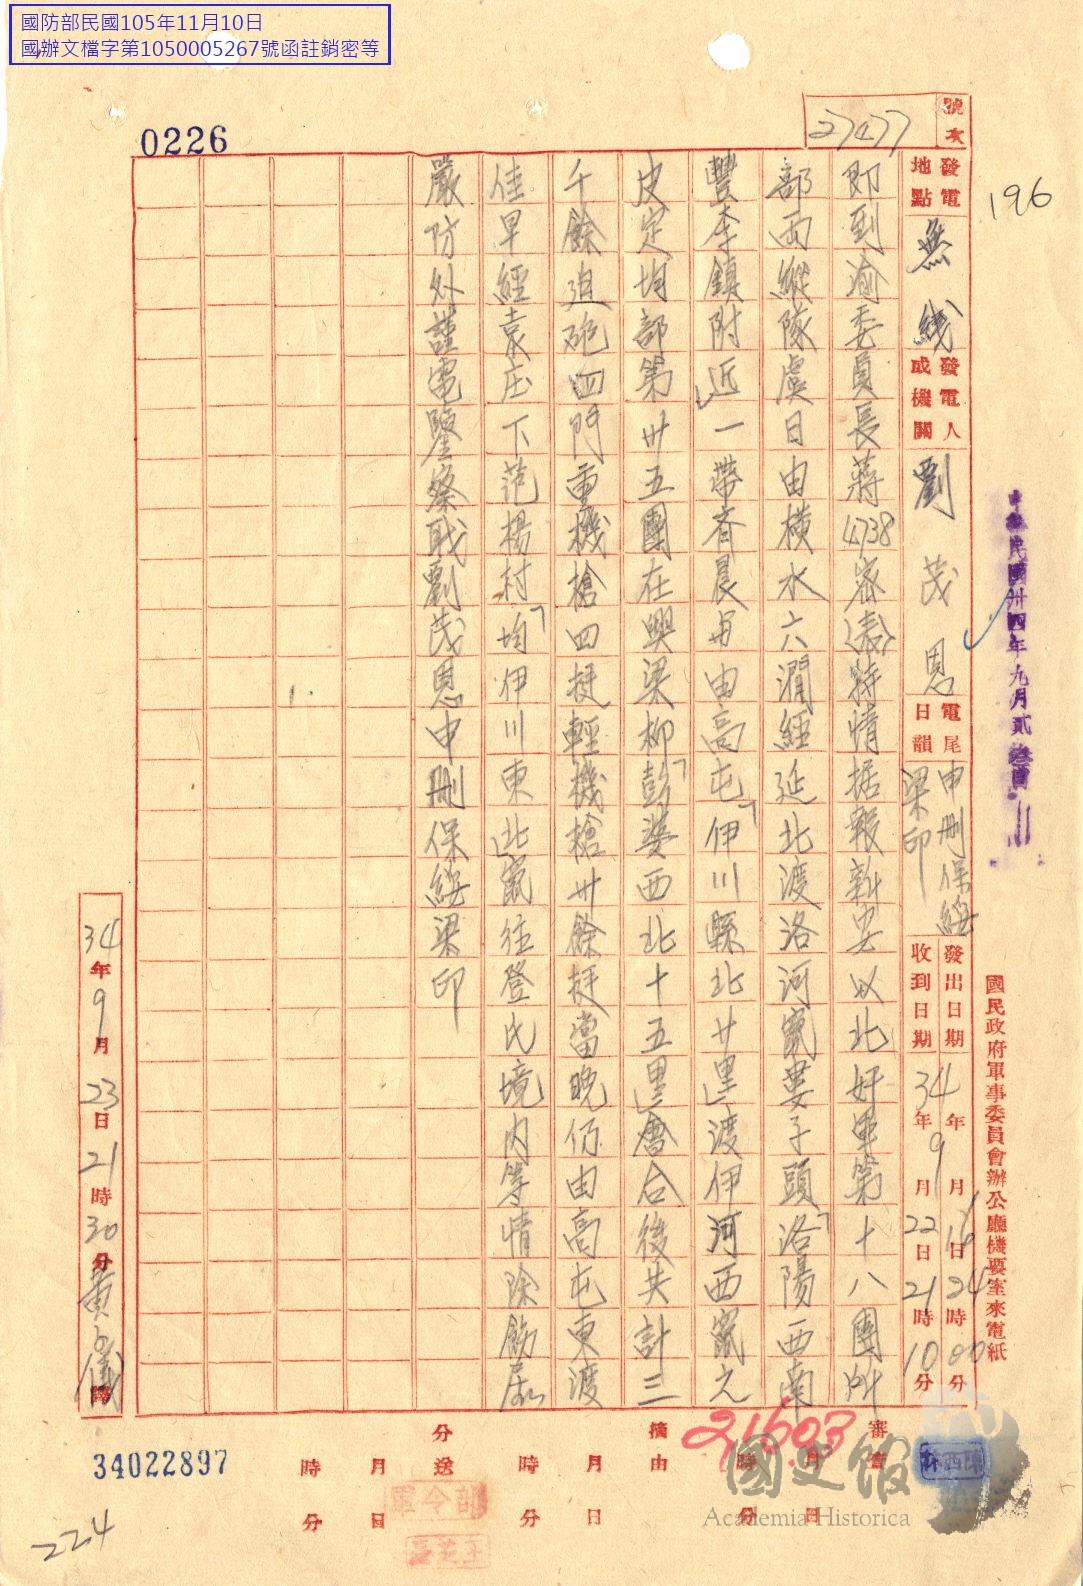 國防部民國105年11月10日
國辦文檔字第1050005267號函註銷密等
0226
號次
27477
196
發電地點
無綫
發電人或機關
劉茂恩
電尾日韻
申刪保綏梁印
發出日期
34年9月16日24時00分
收到日期
34年9月22日21時10分
即到渝委員長蔣4738密(表)特情据報新安以北奸軍第十八團
部两縱隊虞日由橫水六澗經延北渡洛河竄婁子頭洛陽西南
豐李鎮附近一帶齐晨再由高屯伊川縣北廿里渡伊河西竄元
皮定均部第卅五團在興梁柳彭婆西北十五里會合後共計三
千餘迫砲四門重機槍四挺輕機槍卅餘挺當晚仍由高屯東渡
佳早經袁庄下范楊村均伊川東北竄往登氏境内等情除飭
嚴防外謹電鑒察職劉茂恩申刪保綏梁印
中華民國卅四年九月貳
國民政府軍事委員會辦公廳機要室來電紙
34年9月23日21時30分黃
審查
月
日
時
分
摘由
月
日
時
分
分送
月
日
時
分
21603
34022897
224
軍令部
陳西林
國史館
Academia Historica